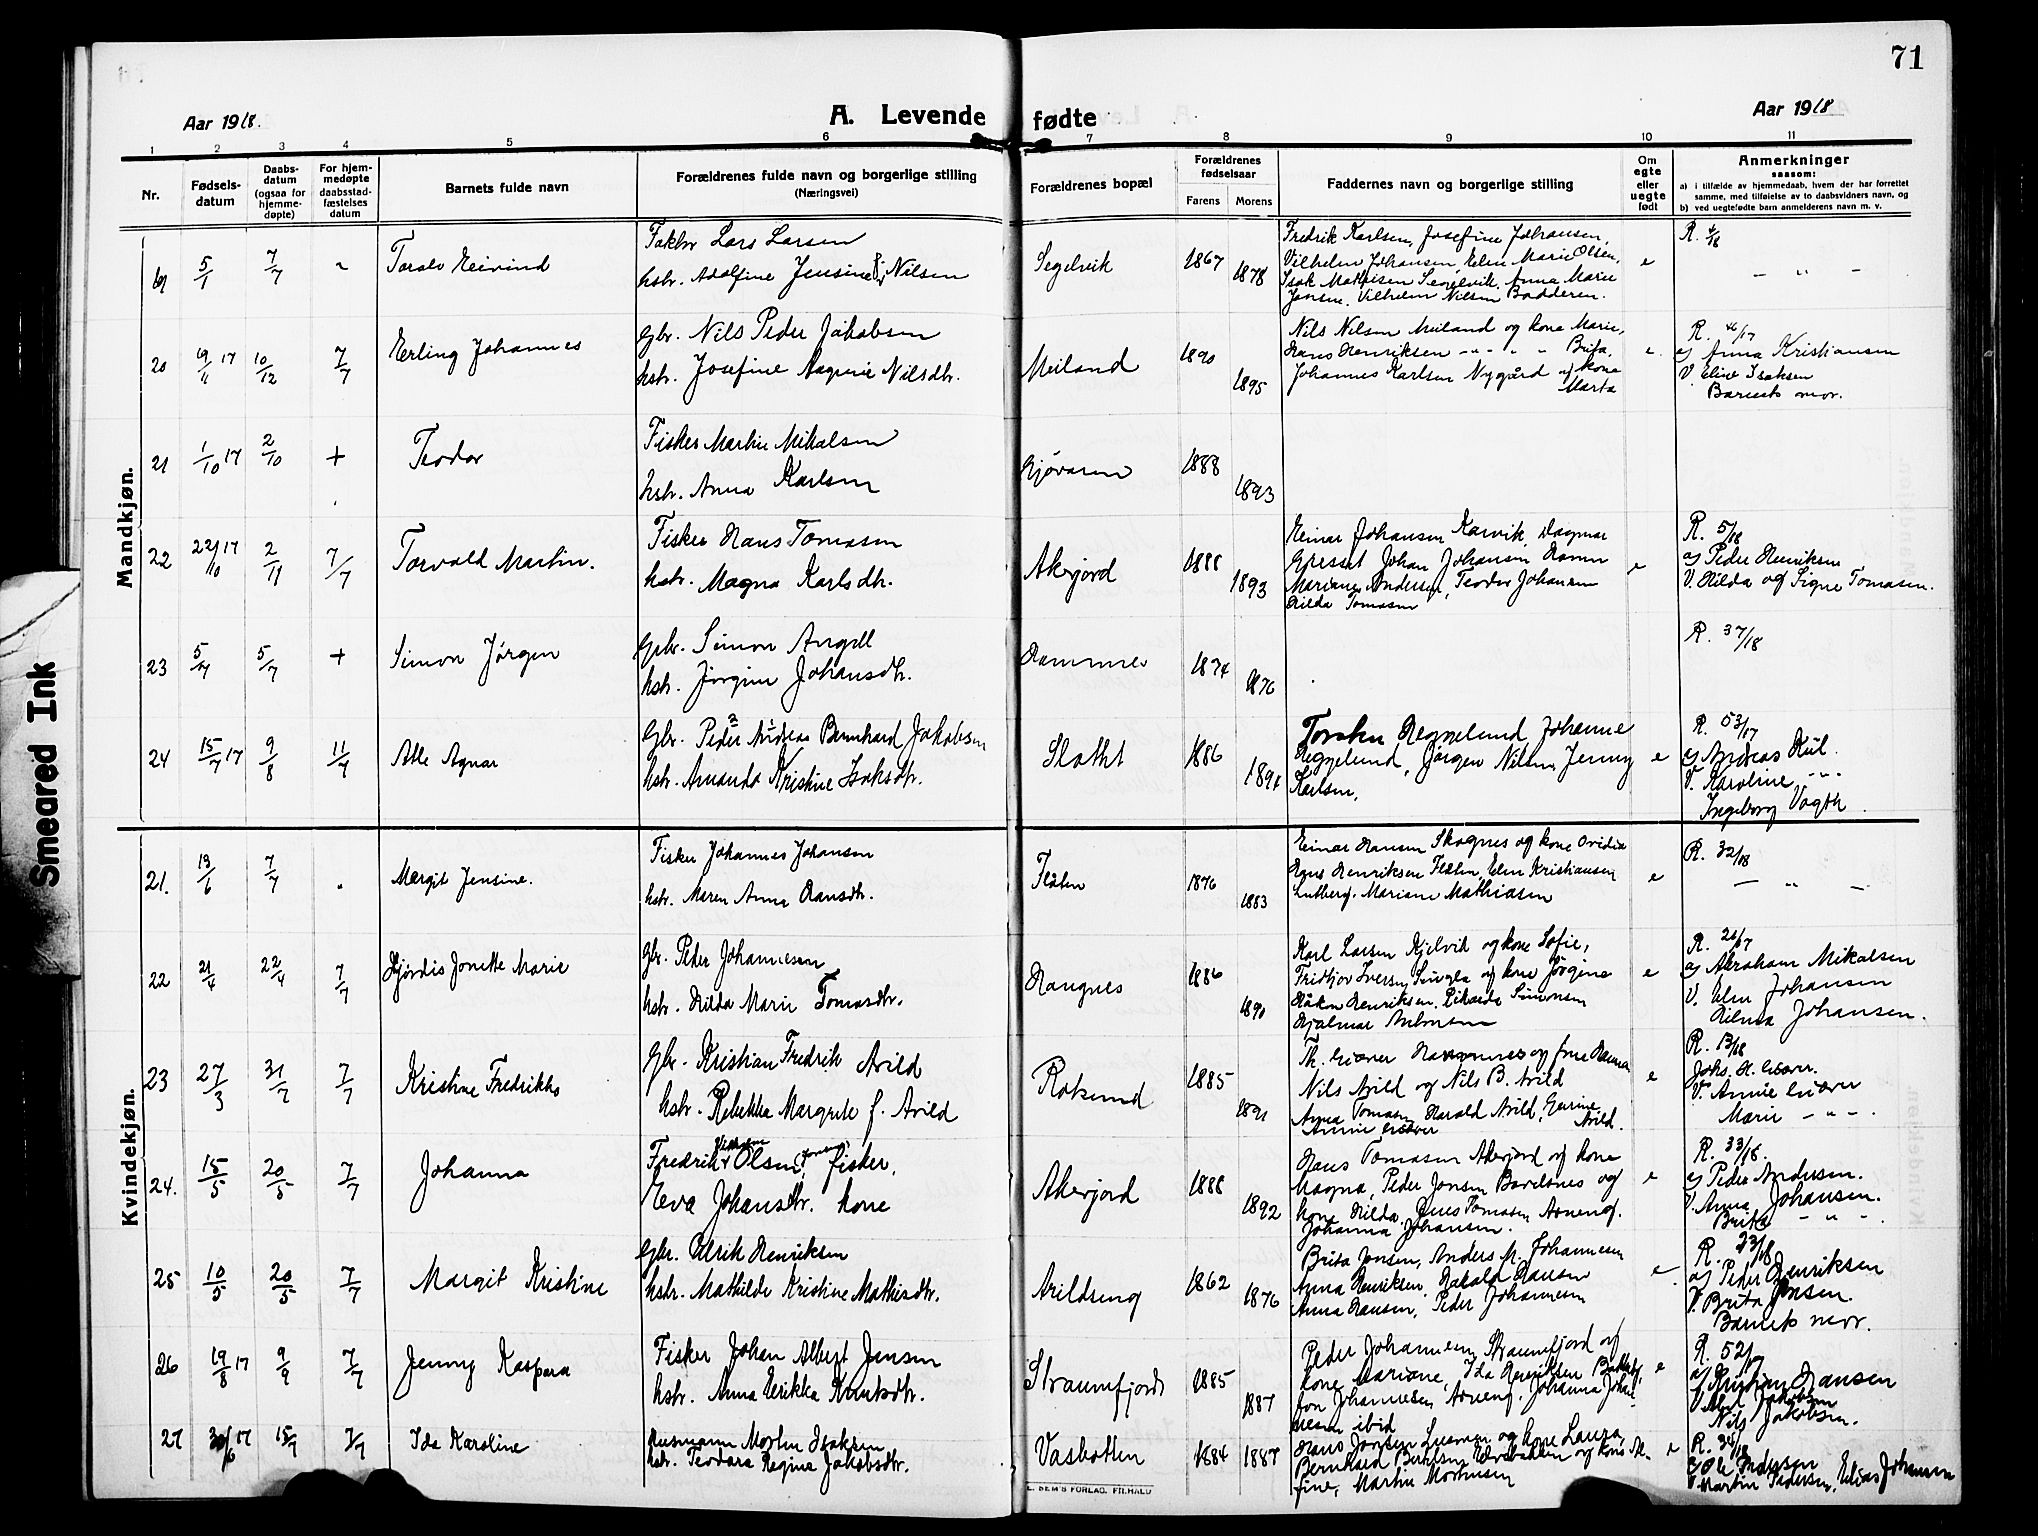 71
Aar 1918.
A. Levende fødte
Aar 1918
1 2 3 4 5 6 7 8 9 10 11
Nr.
Fødsels-
datum
Daabs-
datum
(ogsaa for
hjemme-
døpte)
For hjem-
medøpte
daabsstad-
fæstelses
datum
Barnets fulde navn
Forældrenes fulde navn og borgerlige stilling
(Næringsvei)
Forældrenes bopæl
Forældrenes
fødselsaar
Farens Morens
Faddernes navn og borgerlige stilling
Om
egte
eller
uegte
født
Anmerkninger
saasom:
a) i tilfælde av hjemmedaab, hvem der har forrettet
samme, med tilføielse av to daabsvidners navn, og
b) ved uegtefødte barn anmelderens navn m. v.
Mandkjøn.
19 5/1 7/7 Toralv Eivind
Lars Larsen
hstr. Adolfine Jensine Nilsen
Segelvik 1867 1878
Fredrik Karlsen, Josefine Johansen,
Vilhelm Johansen, Elen Marie Olsen,
Isak Mathisen Segelvik, Anna Marie
Jensen, Vilhelm Nilsen Badderen.
e
20 19/11 17 10/12 7/7 Erling Johannes
Gbr. Nils Peder Jakobsen
hstr. Josefine Nilsdtr.
Meiland 1890 1895
Nils Nilsen Meiland og kone Marie,
Hans Henriksen " " " Brita,
Johannes Karlsen Nygård og kone
Marta
e.
R. 46/17
a) Anna Kristiansen
V. Eline Isaksen
Barnets mor.
21 1/10 17 2/10 + Teodor
Fisker Martin Mikalsen
hstr. Anna Karlsen
Gjøvaren 1888 1893
22 22/10 17 2/11 7/7 Torvald Martin.
Fisker Hans Tomasen
hstr. Magna Karlsdtr.
Akerjord 1888 1893
Einar Johansen Karvik, Dagmar
Johan Johansen
Mariane Andersen, Teodor Johansen
Hilda Tomasen
e
R. 5/18
a) Peder Henriksen
V. Hilda og Signe Tomasen.
23 5/7 5/7 + Simon Jørgen
Gbr. Simon Angell
hstr. Jørgine Johansdtr.
Hamnnes 1874 1876
R. 37/18
24 15/7 17 9/8 11/7 Atle Agnar
Gbr. Peder Andreas Bernhard Jakobsen
hstr. Amanda Kristine Isaksdtr.
Slottet 1886 1891
Torsten Heggelund Johanne
Heggelund, Jørgen Nilsen, Jenny
Karlsen,
e
R. 53/17
a) Andreas Kiil.
V. Karoline "
Ingeborg Vogth.
Kvindekjøn.
21. 13/6 7/7 Margit Jensine.
Fisker Johannes Johansen
hstr. Maren Anna Hansdtr.
Flåten 1876 1883
Einar Hansen Skognes og kone Ovidia
Hans Henriksen Flåten, Elen Kristiansen
Lutberg. Mariane Mathiasen
e
R. 32/18
22 21/4 22/4 7/7 Hjørdis Jonette Marie
Gbr. Peder Johannesen
hstr. Hilda Marie Tomasdtr.
Hangnes 1886 1890
Karl Larsen Kjelvik og kone Sofie,
Fridtjov Iversen, og kone Jørgine
Håkon Henriksen, Rikarda Simonsen
Hjalmar
e
R. 26/17
a) Abraham Mikalsen
V. Elen Johansen
Hilma Johansen.
23 27/3 31/7 7/7 Kristine Fredrikke
Gbr. Kristian Fredrik Arild
hstr. Rebekka Margrete f. Arild
Rotsund 1885 1891
Th. Giæver Havnnes og frue Hanna
Nils Arild og Nils B. Arild
Anna Tomasen, Harald Arild, Arild.
Annie Giæver
e
R. 13/18
Johs. H. Giæver.
V. Annie Giæver
Marie " .
24. 15/5 20/5 7/7 Johanna
Fredrik Olsen, fisker,
Eva Johansdtr. kone
Akerjord 1888 1892
Hans Tomasen Akerjord og kone
Magna, Peder Jonsen og
kone Hilda, Jens Tomasen Arneng.
Johanna Johansen.
e
R. 33/18.
a) Peder Andersen.
V. Anna Johansen.
Brita " .
25 10/5 20/5 7/7 Margit Kristine
Gbr. Ulrik Henriksen
hstr. Mathilde Kristine Mathisdtr.
Arildseng 1862 1876
Brita Jensen, Anders M. Johannesen
Anna Henriksen, Harald Hansen
Anna Hansen, Peder Johannesen
e
R. 23/18
a) Peder Henriksen
V. Brita Jensen.
Barnets mor.
26 19/8 17 9/9 7/7 Jenny Kaspara
Fisker Johan Albert Jensen
hstr. Anna Erikka Knutsdtr.
Straumfjord 1885 1887
Peder Johannesen, Straumfjord og
kone Mariane, Ida Henriksen
Johannesen Arneng, Johanna Johan-
nesen ibid
e
R. 52/17
a) Kristian Hansen
V. Jakobsen
Nils Jakobsen.
27 30/6 17 15/7 7/7 Ida Karoline
Husmann Morten Isaksen
hstr. Teodora Regine Jakobsdtr.
Vasbotten 1884 1887
Hans Jensen og kone Laura,
Bernhard Berthelsen og kone
fine, Martin Mortensen
e
R. 34/18
a) Ole Andersen
V. Martin Pedersen, Elias Johansen
L. BEM'S FORLAG, FR.HALD
Smeared Ink